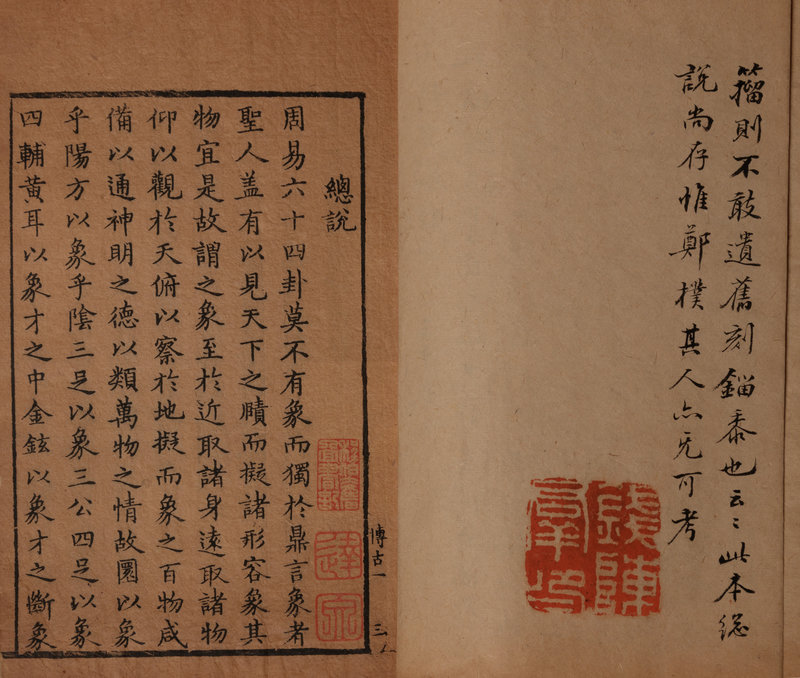 籕則不敢遺舊刻錙黍也云〻此本總
說尚存惟鄭樸其人亦无可考
錢陳
羣印
博古一
三
總說
周易六十四卦莫不有象而獨於鼎言象者
聖人盖有以見天下之賾而擬諸形容象其
物宜是故謂之象至於近取諸身遠取諸物
仰以觀於天俯以察於地擬而象之百物咸
備以通神明之德以類萬物之情故圜以象
乎陽方以象乎陰三足以象三公四足以象
四輔黃耳以象才之中金鉉以象才之斷象